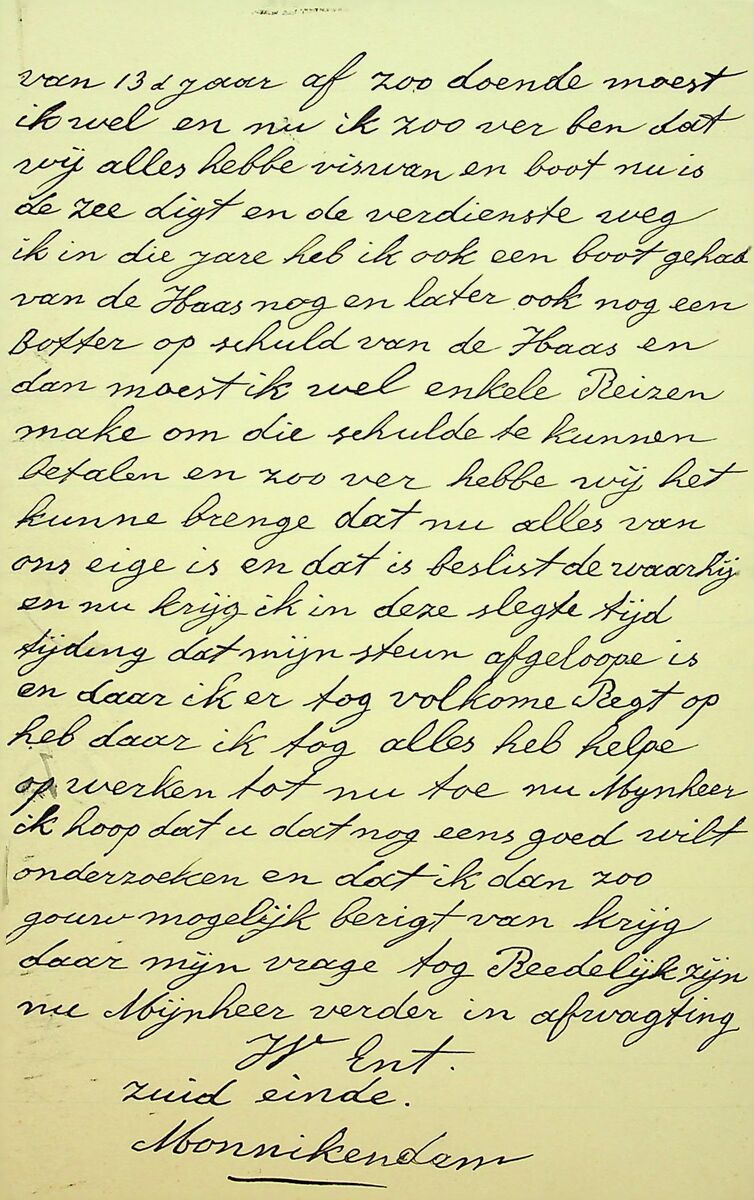 van 13 d jaar af zoo doende moest
ik wel en nu ik zoo ver ben dat
wij alles hebbe viswan en boot nu is
de zee digt en de verdienste weg
ik in die jare heb ik ook een boot gehad
van de Haas nog en later ook nog een
Botter op schuld van de Haas en
dan moest ik wel enkele Reizen
make om die schulde te kunnen
betalen en zoo ver hebbe wij het
kunne brenge dat nu alles van
ons eige is en dat is beslist de waarhij
en nu krijg ik in deze slegte tijd
tijding dat mijn steun afgeloope is
en daar ik er tog volkome Regt op
heb daar ik tog alles heb helpe
op werken tot nu toe nu Mynheer
ik hoop dat u dat nog eens goed wilt
onderzoeken en dat ik dan zoo
gouw mogelijk berigt van krijg
daar mijn vrage tog Reedelijk zijn
nu Mijnheer verder in afwagting
W Ent.
zuid einde.
Monnikendam